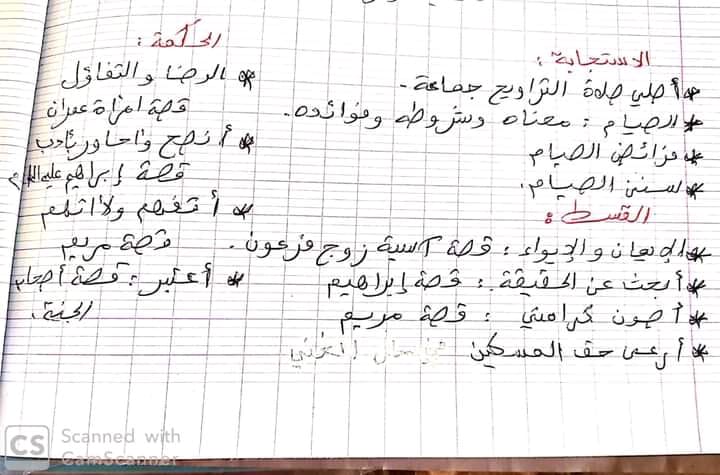 الاستجابة:
* أصلي صلاة التراويح جماعة.
* الصيام: معناه وشروطه وفوائده.
* فرائض الصيام
* سنن الصيام.
القسط:
* الإيمان والإيواء: قصة آسية زوج فرعون.
* أبحث عن الحقيقة: قصة إبراهيم
* أصون كرامتي: قصة مريم
* أرعى حق المسكين من مال
الحكمة:
* الرضا والتفاؤل
قصة امرأة عمران
* أنصح وأحاور بأدب
قصة إبراهيم عليه السلام
* أتفهم ولا
قصة مريم
* أعتبر: قصة أصحاب
الجنة.
CS Scanned with
CamScanner